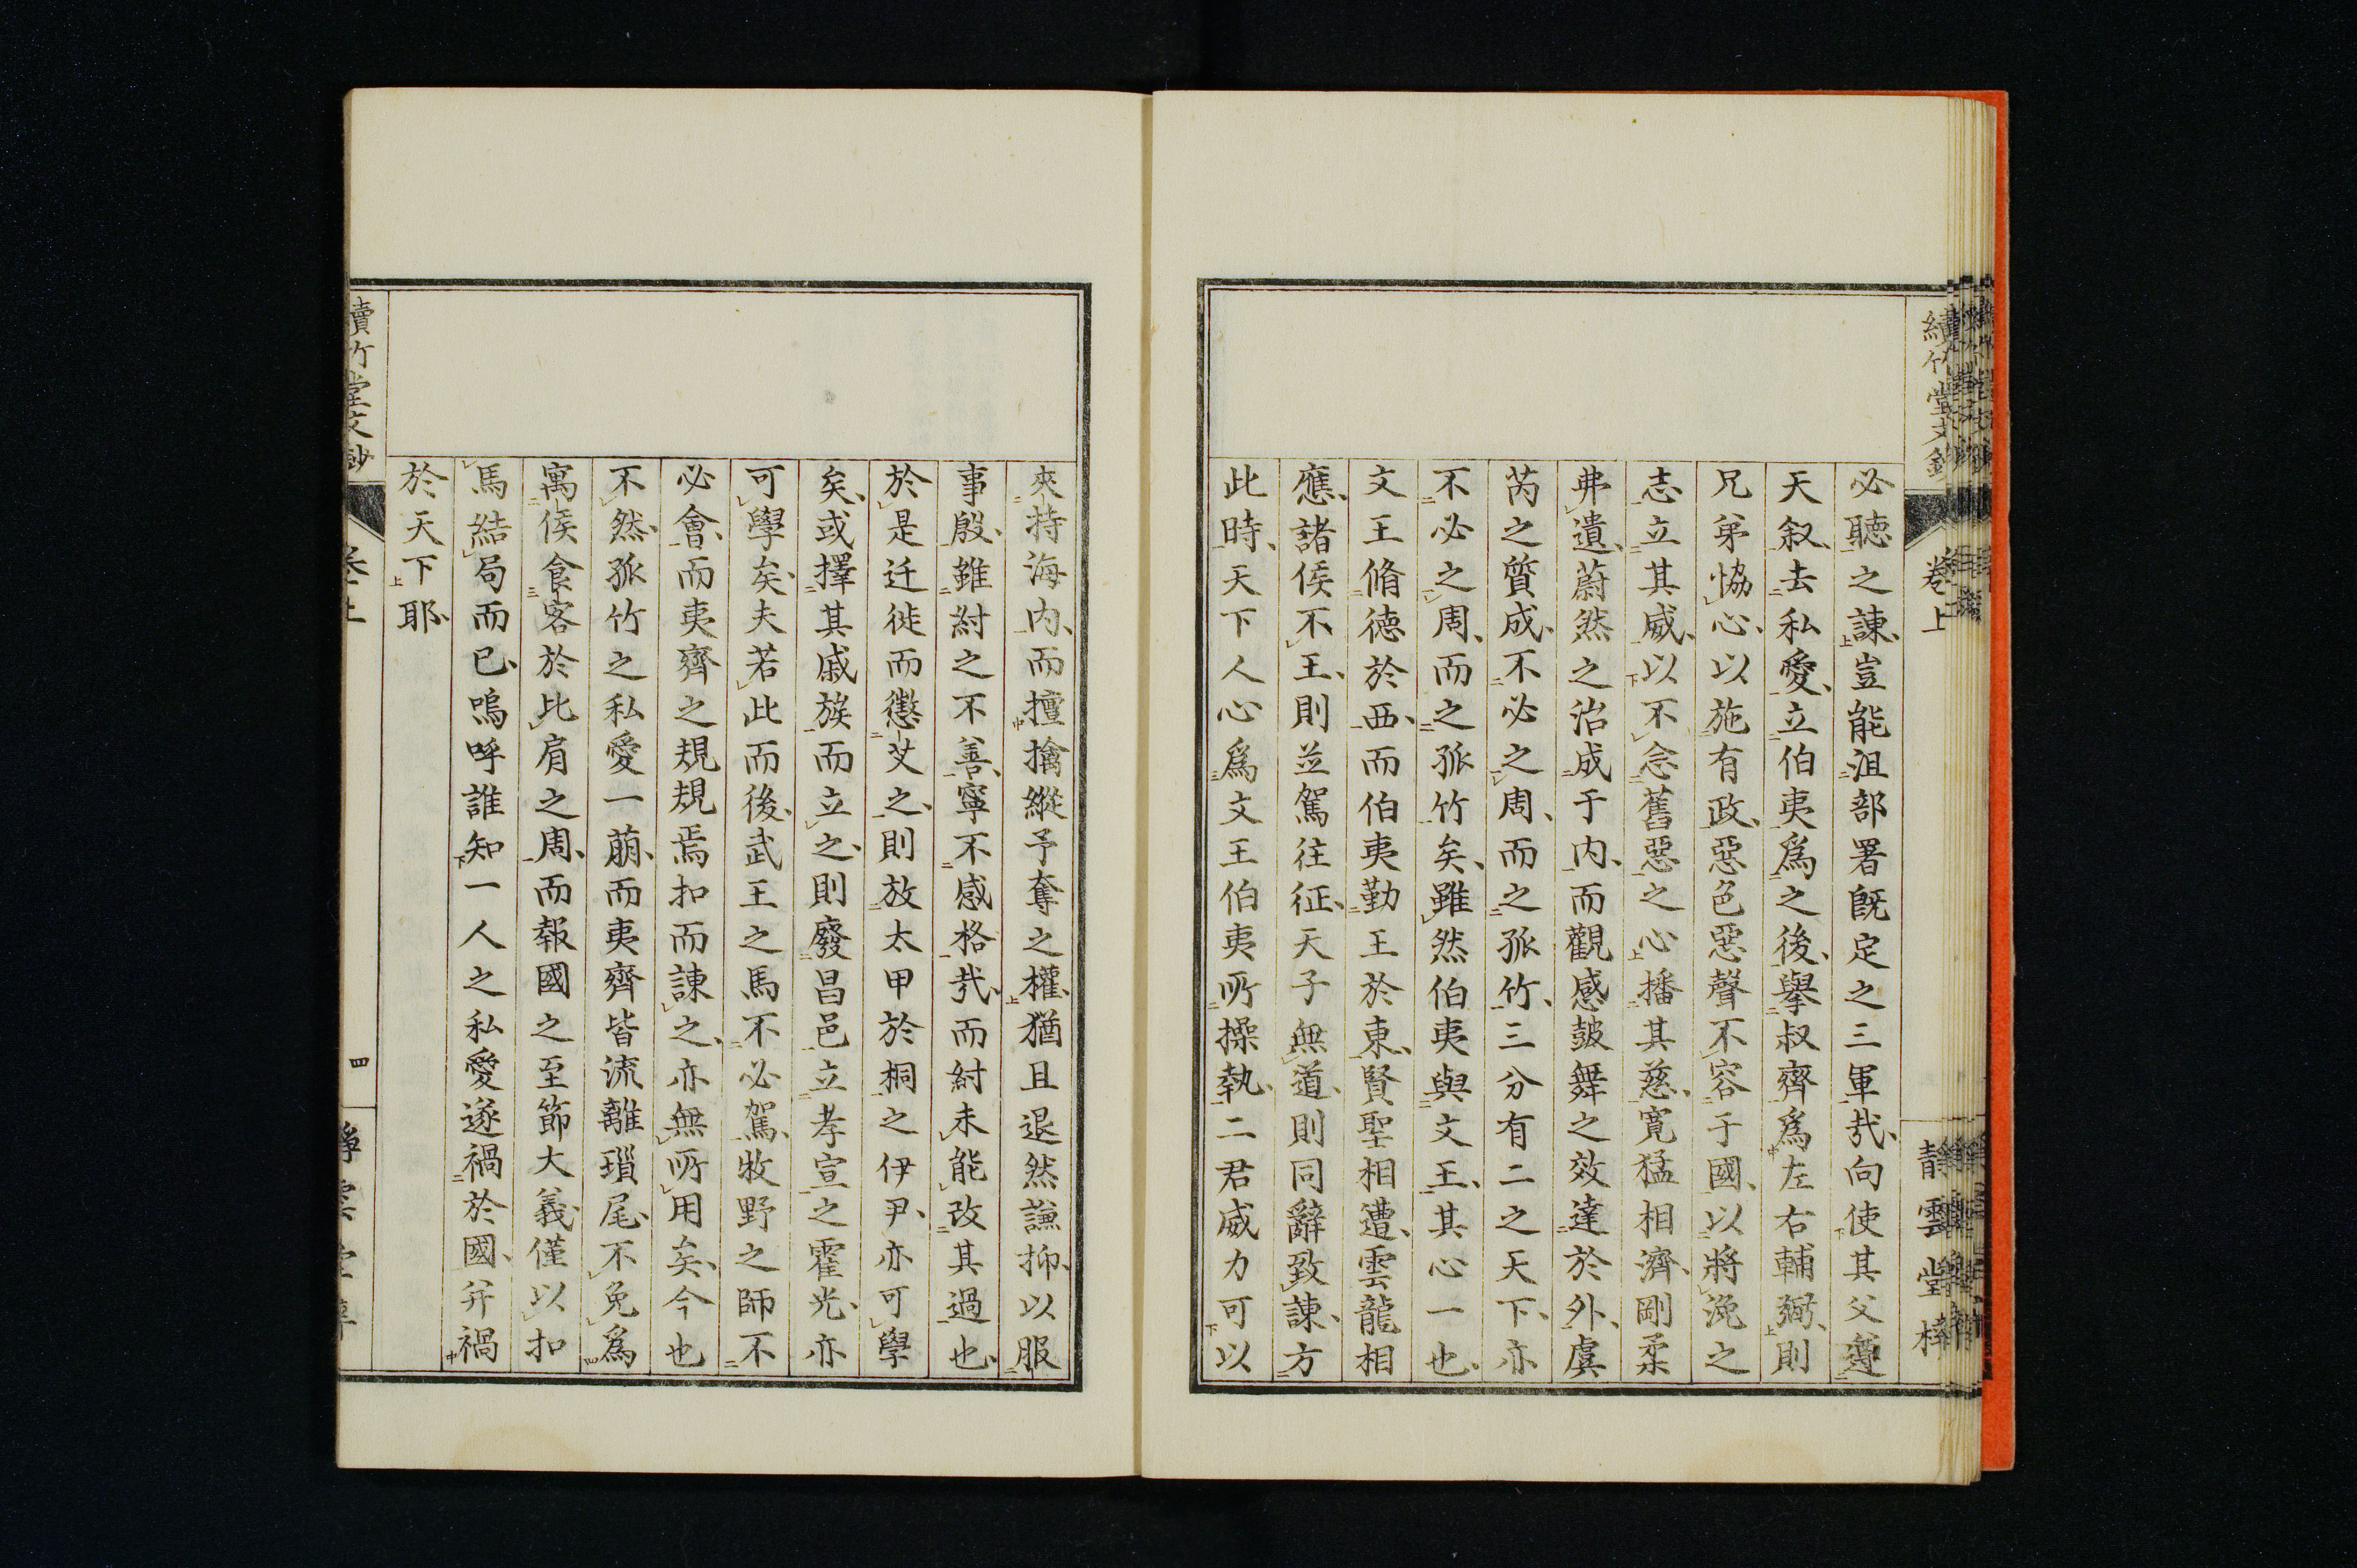 續竹堂文鈔 卷上 靜雲堂梓
必聽之諫、豈能沮部署既定之三軍哉、向使其父遵
天叙、去私愛、立伯夷爲之後、擧叔齊爲左右輔弼、則
兄弟恊心、以施有政、惡色惡聲不容于國、以將浼之
志立其威、以不念舊惡之心播其慈、寬猛相濟、剛柔
弗遺、蔚然之治成于内、而觀感鼓舞之效達於外、虞
芮之質成、不必之周、而之孤竹、三分有二之天下、亦
不必之周、而之孤竹矣、雖然伯夷與文王、其心一也、
文王脩德於西、而伯夷勤王於東、賢聖相遭、雲龍相
應、諸侯不王、則並駕往征、天子無道、則同辭致諫、方
此時、天下人心爲文王伯夷所操執、二君威力可以
夾持海内、而擅擒縱予奪之權、猶且退然謙抑、以服
事殷、雖紂之不善、寧不感格哉、而紂未能改其過也、
於是迁徙而懲艾之、則放太甲於桐之伊尹、亦可學
矣、或擇其戚族而立之、則廢昌邑立孝宣之霍光、亦
可學矣、夫若此而後、武王之馬不必駕、牧野之師不
必會、而夷齊之規規焉扣而諫之、亦無所用矣、今也
不然、孤竹之私愛一萠、而夷齊皆流離瑣尾、不免爲
寓侯食客於比肩之周、而報國之至節大義、僅以扣
馬結局而已、嗚呼誰知一人之私愛遂禍於國、并禍
於天下耶、
續竹堂文鈔 卷上 四 靜雲堂梓